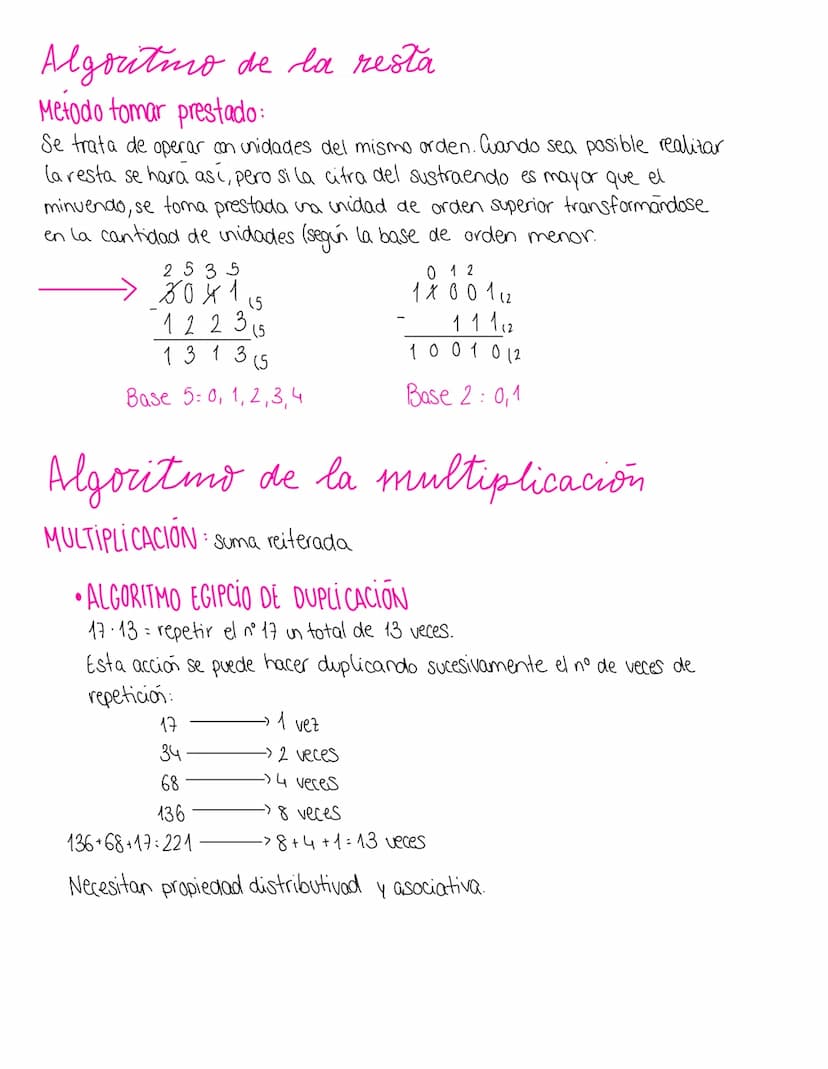 Algoritmo de la resta
Método tomar prestado:
Se trata de operar con unidades del mismo orden. Cuando sea posible realizar
la resta se hará así, pero si la cifra del sustraendo es mayor que el
minuendo, se toma prestada una unidad de orden superior transformándose
en la cantidad de unidades (según la base de orden menor.
2 5 3 5 0 1 2
3 0 4 1 (5 1 1 0 0 1 (2
- 1 2 2 3 (5 - 1 1 1 (2
1 3 1 3 (5 1 0 0 1 0 (2
Base 5: 0, 1, 2, 3, 4 Base 2 : 0,1
Algoritmo de la multiplicación
MULTIPLICACIÓN : suma reiterada
• ALGORITMO EGIPCIO DE DUPLICACIÓN
17 · 13 = repetir el nº 17 un total de 13 veces.
Esta acción se puede hacer duplicando sucesivamente el nº de veces de
repetición:
17 → 1 vez
34 → 2 veces
68 → 4 veces
136 → 8 veces
136+68+17=221 → 8+4+1=13 veces
Necesitan propiedad distributivad y asociativa.